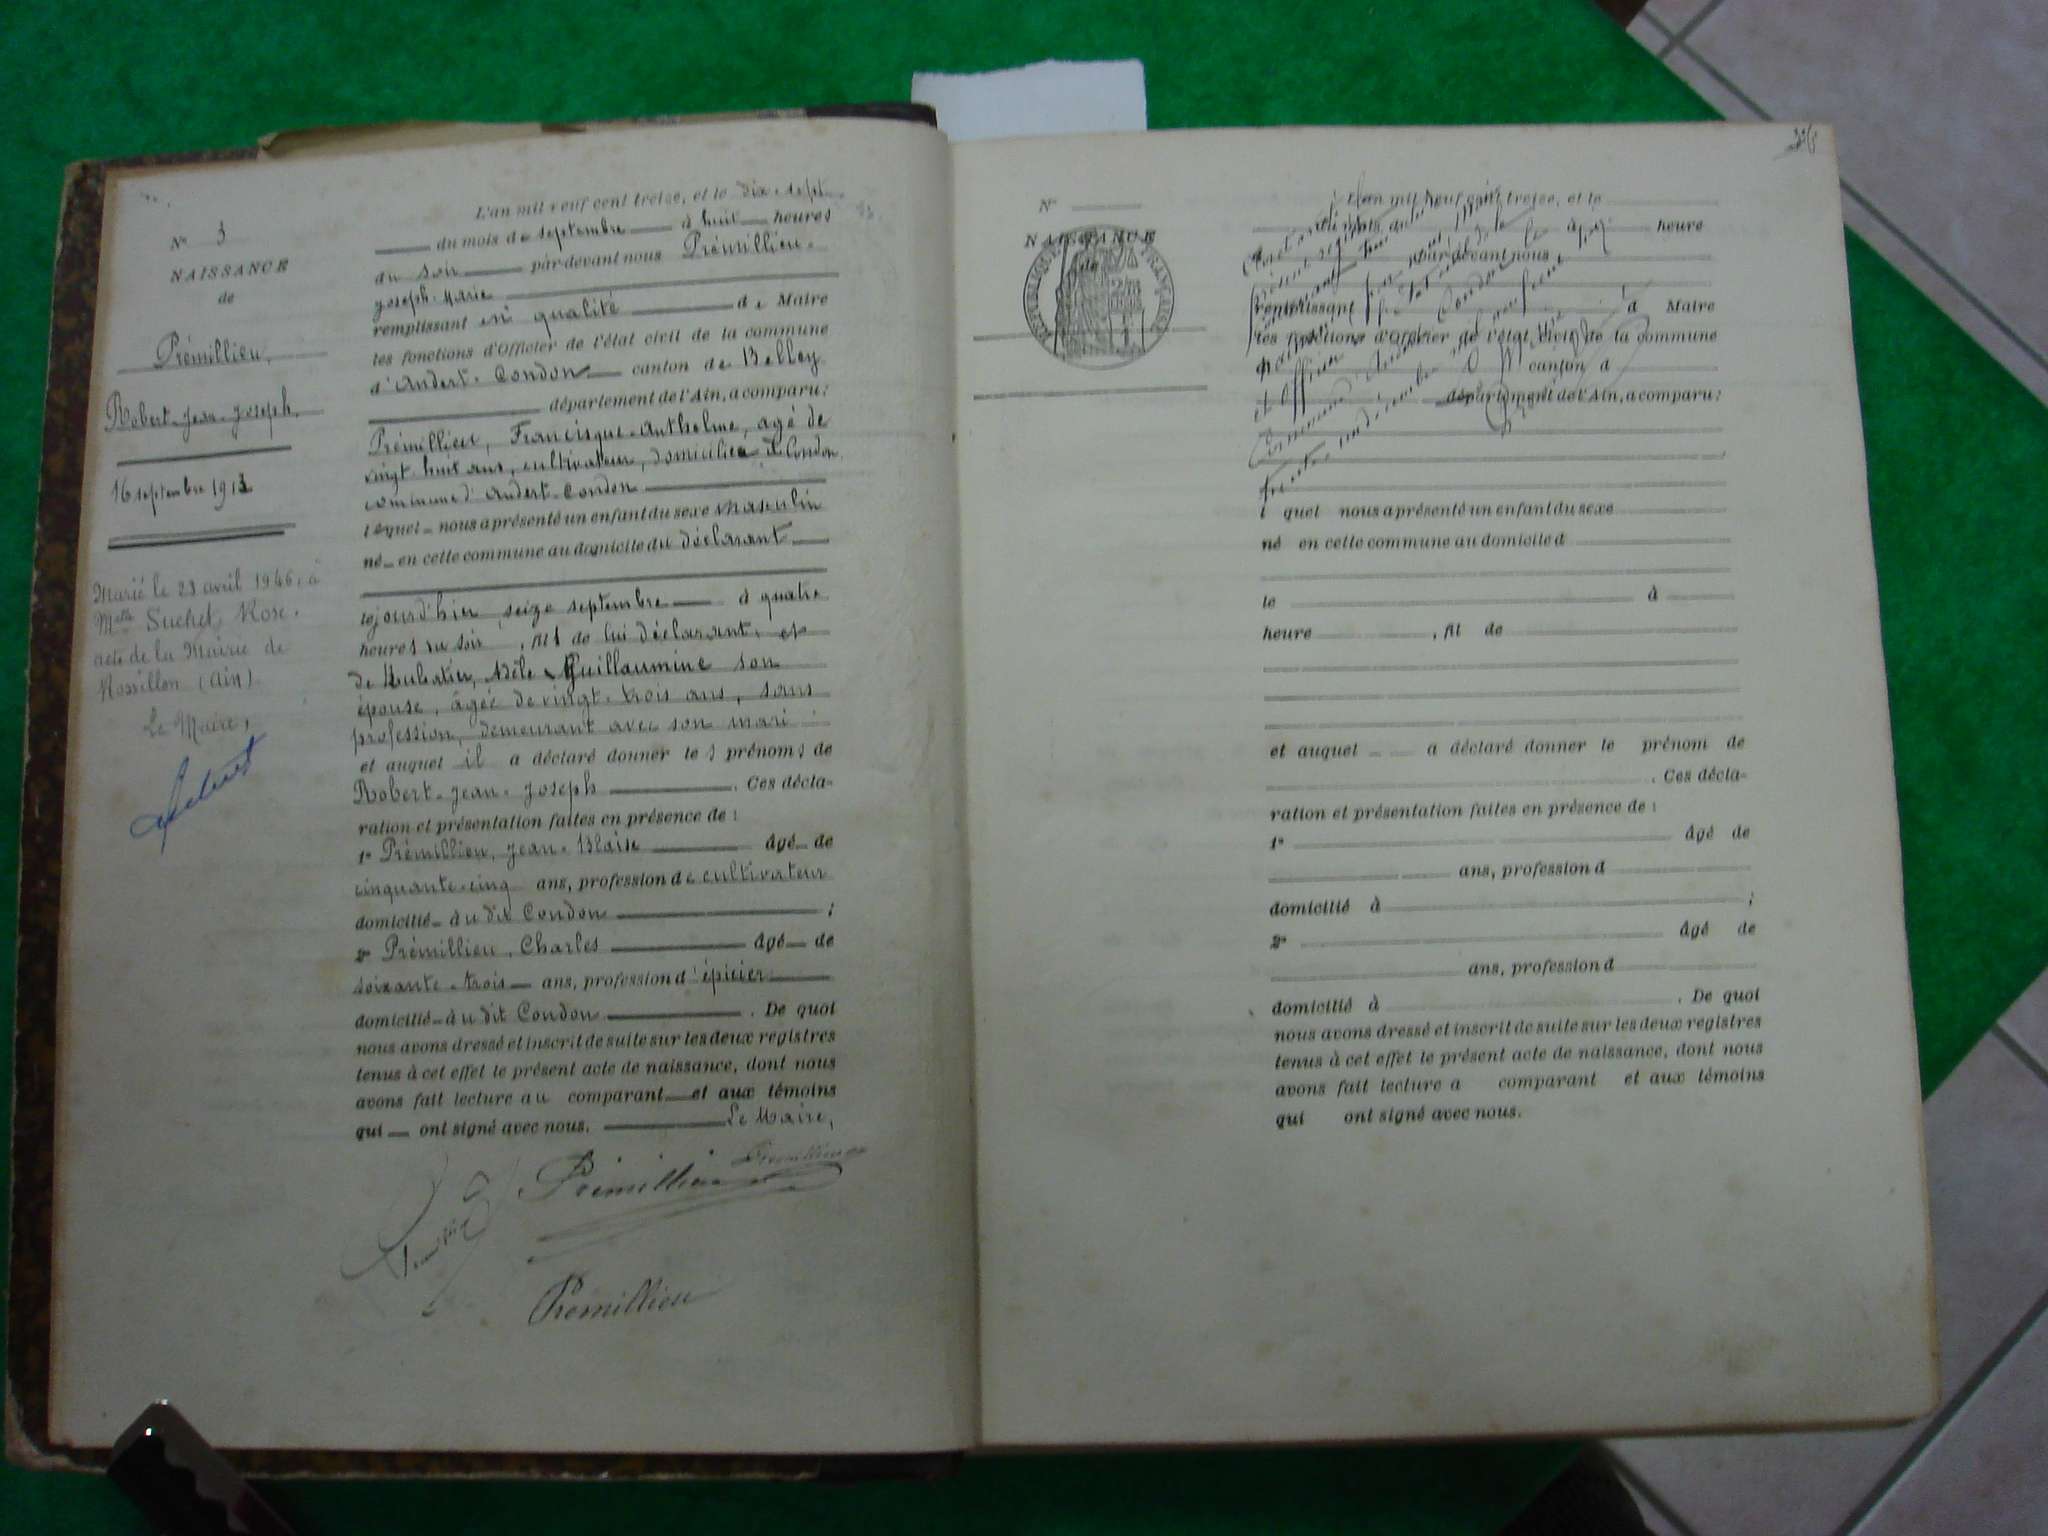 N° 3
NAISSANCE
de
Prémillieu,
Robert-Jean-Joseph.
16 septembre 1913
Marié le 23 avril 1946, à
Melle Suchet, Rose.
acte de la Mairie de
Rossillon (Ain).
Le Maire,
L'an mil neuf cent treize, et le dix-sept
du mois de septembre à huit heures
du soir par-devant nous Prémillieu,
Joseph-Marie
remplissant en qualité de Maire
les fonctions d'Officier de l'état civil de la commune
d'Andert-Condon canton de Belley
département de l'Ain, a comparu:
Prémillieu, Francisque-Anthelme, agé de
vingt-huit ans, cultivateur, domicilié à Condon,
commune d'Andert-Condon
lequel nous a présenté un enfant du sexe masculin
né en cette commune au domicile du déclarant
lejourd'hier seize septembre à quatre
heures du soir, fils de lui déclarant, et
de Adèle Guillaumine son
épouse, âgée de vingt-trois ans, sans
profession, demeurant avec son mari
et auquel il a déclaré donner les prénoms de
Robert-Jean-Joseph. Ces décla-
ration et présentation faites en présence de:
1° Prémillieu, Jean-Blaise âgé de
cinquante-cinq ans, profession de cultivateur
domicilié au dit Condon ;
2° Prémillieu, Charles âgé de
soixante-trois ans, profession d'épicier
domicilié au dit Condon. De quoi
nous avons dressé et inscrit de suite sur les deux registres
tenus à cet effet le présent acte de naissance, dont nous
avons fait lecture au comparant et aux témoins
qui ont signé avec nous. Le Maire,
Prémillieu
Prémillieu
Prémillieu
N°
NAISSANCE
de
L'an mil neuf cent treize, et le
à heure
par-devant nous
remplissant d Maire
les fonctions d'Officier de l'état civil de la commune
canton d
département de l'Ain, a comparu:
l quel nous a présenté un enfant du sexe
né en cette commune au domicile d
le à
heure , fil de
et auquel a déclaré donner le prénom de
. Ces décla-
ration et présentation faites en présence de:
1° âgé de
ans, profession d
domicilié à ;
2° âgé de
ans, profession d
domicilié à . De quoi
nous avons dressé et inscrit de suite sur les deux registres
tenus à cet effet le présent acte de naissance, dont nous
avons fait lecture a comparant et aux témoins
qui ont signé avec nous.